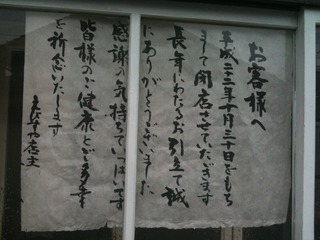 お客様へ
平成二十二年十月三十日をもち
まして閉店させていただきます
長年にわたるお引立て誠
にありがとうございました
感謝の気持ちでいっぱいです
皆様のご健康とご多幸
を祈念いたします
店主